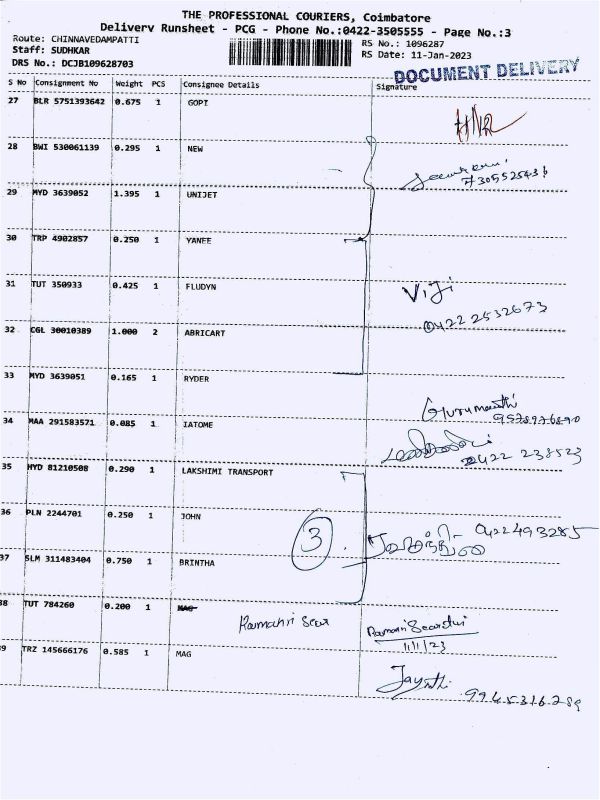 THE PROFESSIONAL COURIERS, Coimbatore
Delivery Runsheet - PCG - Phone No.:0422-3505555 - Page No.:3
Route: CHINNAVEDAMPATTI
Staff: SUDHKAR
DRS No.: DCJB109628703
RS No.: 1096287
RS Date: 11-Jan-2023
DOCUMENT DELIVERY
S No Consignment No Weight PCS Consignee Details Signature
27 BLR 5751393642 0.675 1 GOPI
28 BWI 530061139 0.295 1 NEW
7305525431
29 MYD 3639052 1.395 1 UNIJET
30 TRP 4902857 0.250 1 YANEE
31 TUT 350933 0.425 1 FLUDYN Viji
0422 2532673
32 CGL 30010389 1.000 2 ABRICART
33 MYD 3639051 0.165 1 RYDER
Gurumoorthi
9578976890
34 MAA 291583571 0.085 1 IATOME
0422 238523
35 HYD 81210508 0.290 1 LAKSHIMI TRANSPORT
36 PLN 2244701 0.250 1 JOHN
3 0422493285
37 SLM 311483404 0.750 1 BRINTHA
38 TUT 784260 0.200 1 MAG
11/1/23
39 TRZ 145666176 0.585 1 MAG
Jayathi 9945316289